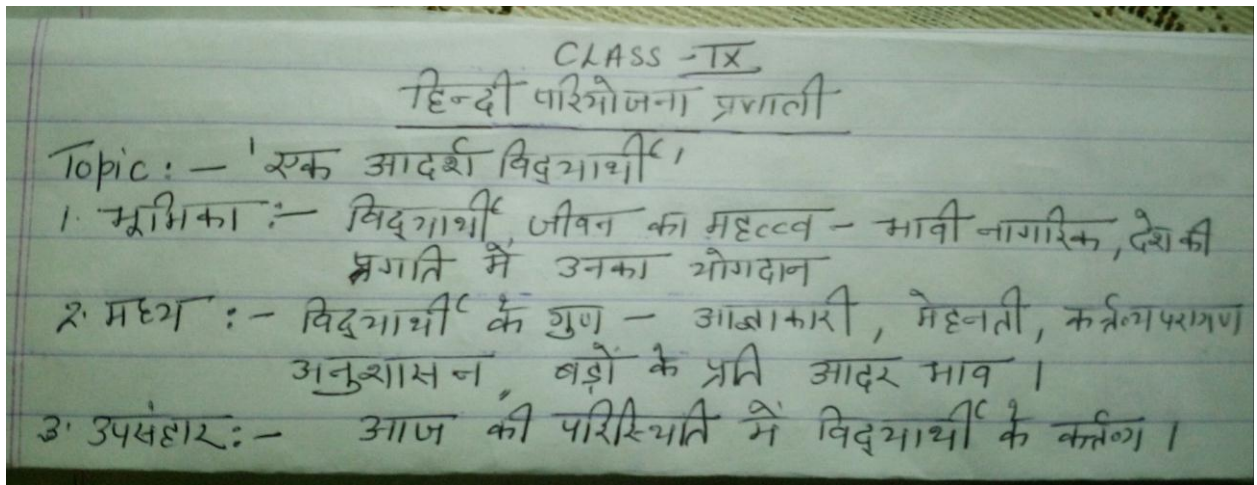 CLASS - IX
हिन्दी परियोजना प्रणाली
Topic : - 'एक आदर्श विद्यार्थी'
1. भूमिका :- विद्यार्थी जीवन का महत्त्व - भावी नागरिक, देश की
प्रगति में उनका योगदान
2. मध्य :- विद्यार्थी के गुण - आज्ञाकारी, मेहनती, कर्त्तव्यपरायण
अनुशासन, बड़ों के प्रति आदर भाव ।
3. उपसंहार :- आज की परिस्थिति में विद्यार्थी के कर्त्तव्य ।